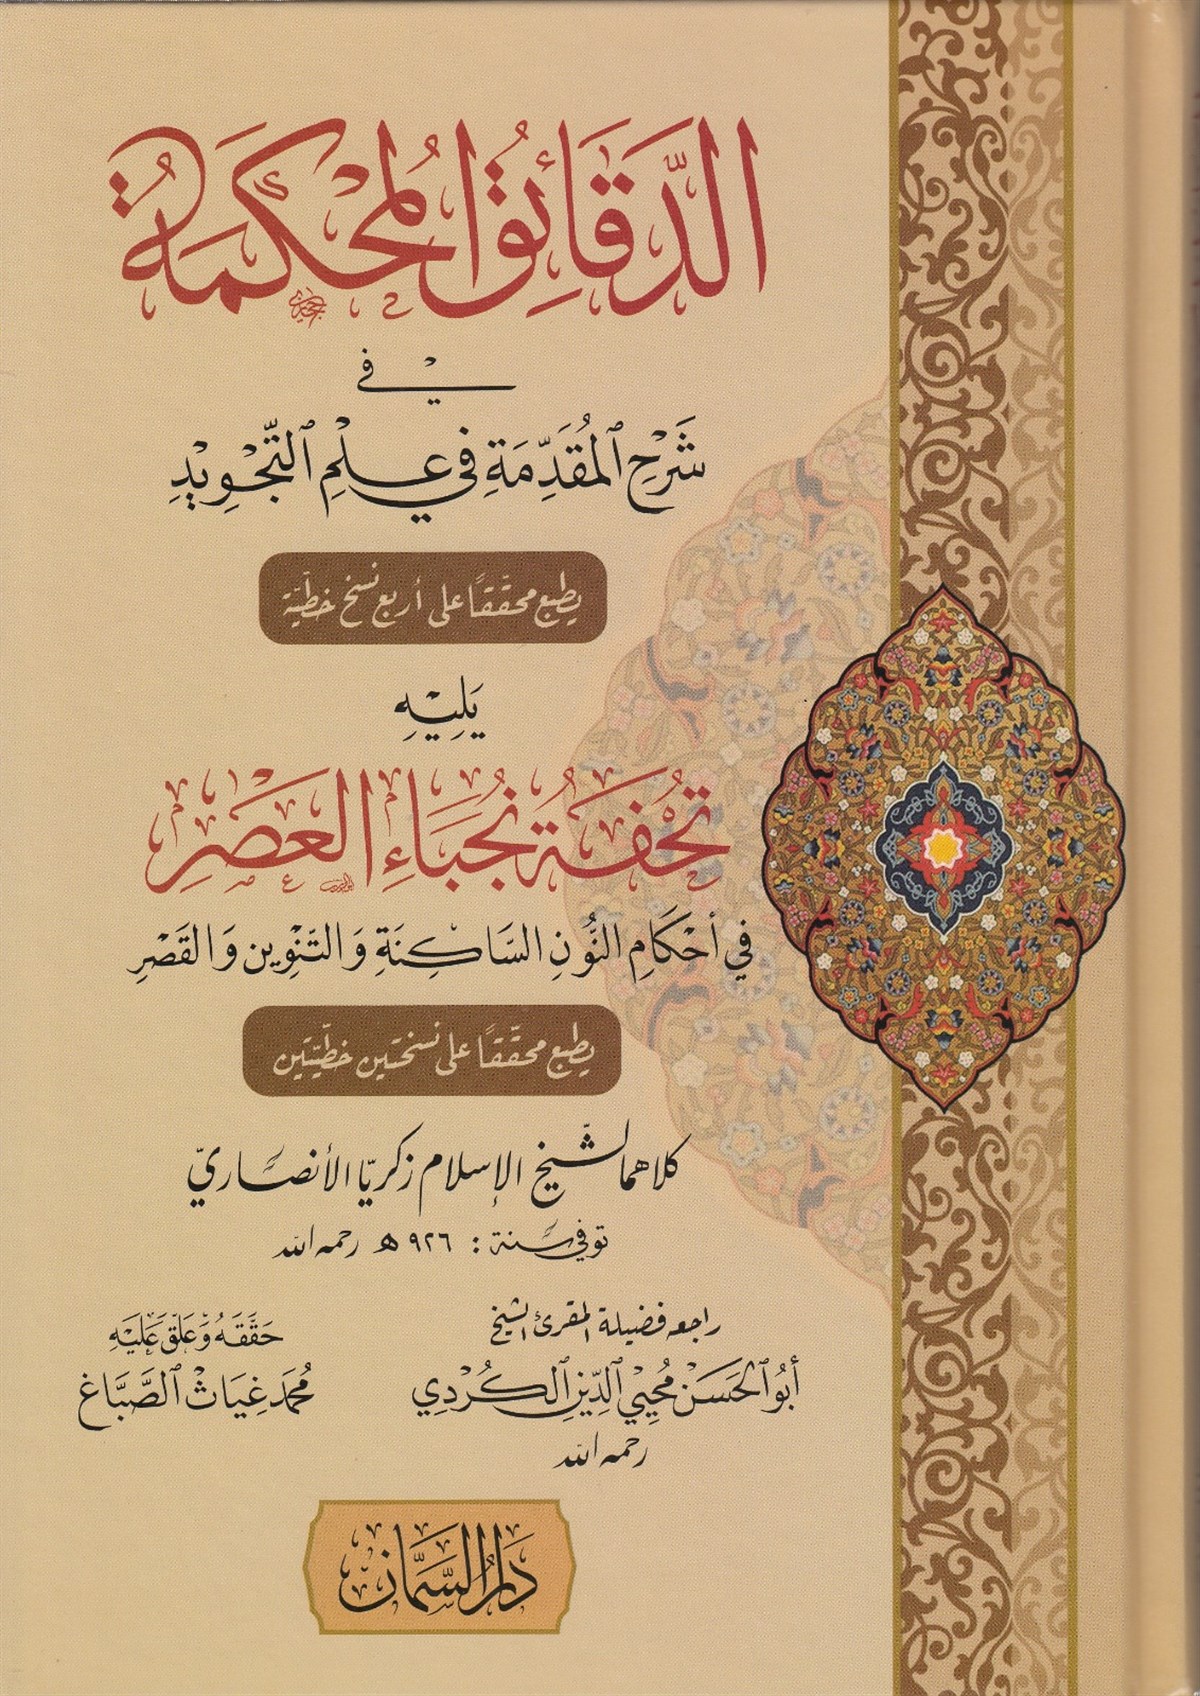 الدَّقَائِقُ المُحْكَمَةُ
في
شَرْحِ المُقَدِّمَةِ فِي عِلْمِ التَّجْوِيدِ
يطبع محقّقًا على أربع نسخ خطّيّة
يَلِيْهِ
تُحْفَةُ نُجَبَاءِ العَصْرِ
فِي أَحْكَامِ النُّونِ السَّاكِنَةِ وَالتَّنْوِينِ وَالقَصْرِ
يطبع محقّقًا على نسختين خطّيّتين
كلاهما لشيخ الإسلام زكريّا الأنصاريّ
توفي سنة : ٩٢٦ هـ رحمه الله
راجعه فضيلة المقرئ الشيخ
أَبُو الحَسَنْ مُحْيِي الدِّينِ الكُرْدِي
رحمه الله
حَقَّقَهُ وَعَلَّقَ عَلَيْهِ
مُحَمَّد غِيَاثْ الصَّبَّاغ
دَارُ السَّمَّان